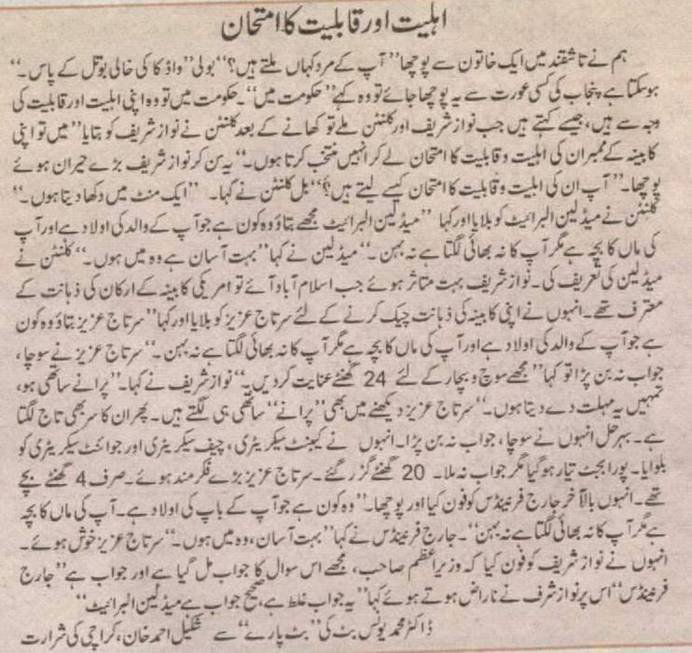 اہلیت اور قابلیت کا امتحان
ہم نے تاشقند میں ایک خاتون سے پوچھا ’’آپ کے مرد کہاں ملتے ہیں؟‘‘ بولی ’’واڈکا کی خالی بوتل کے پاس۔‘‘
ہوسکتا ہے پنجاب کی کسی عورت سے یہ پوچھا جائے تو وہ کہے ’’حکومت میں‘‘۔ حکومت میں تو وہ اپنی اہلیت اور قابلیت کی
وجہ سے ہیں، جیسے کہتے ہیں جب نواز شریف اور کلنٹن ملے تو کھانے کے بعد کلنٹن نے نواز شریف کو بتایا ’’میں تو اپنی
کابینہ کے ممبران کی اہلیت و قابلیت کا امتحان لے کر انہیں منتخب کرتا ہوں۔‘‘ یہ سن کر نواز شریف بڑے حیران ہوئے
پوچھا۔ ’’آپ ان کی اہلیت و قابلیت کا امتحان کیسے لیتے ہیں؟‘‘ بل کلنٹن نے کہا۔ ’’ایک منٹ میں دکھا دیتا ہوں۔‘‘
کلنٹن نے میڈلین البرائیٹ کو بلایا اور کہا ’’میڈلین البرائیٹ مجھے بتاؤ وہ کون ہے جو آپ کے والد کی اولاد ہے اور آپ
کی ماں کا بچہ ہے مگر آپ کا نہ بھائی لگتا ہے نہ بہن۔‘‘ میڈلین نے کہا ’’بہت آسان ہے وہ میں ہوں۔‘‘ کلنٹن نے
میڈلین کی تعریف کی۔ نواز شریف بہت متاثر ہوئے جب اسلام آباد آئے تو امریکی کابینہ کے ارکان کی ذہانت کے
معترف تھے۔ انہوں نے اپنی کابینہ کی ذہانت چیک کرنے کے لئے سرتاج عزیز کو بلایا اور کہا ’’سرتاج عزیز بتاؤ وہ کون
ہے جو آپ کے والد کی اولاد ہے اور آپ کی ماں کا بچہ ہے مگر آپ کا نہ بھائی لگتا ہے نہ بہن۔‘‘ سرتاج عزیز نے سوچا،
جواب نہ بن پڑا تو کہا ’’مجھے سوچ و بچار کے لئے 24 گھنٹے عنایت کر دیں۔‘‘ نواز شریف نے کہا۔ ’’پرانے ساتھی ہو،
تمہیں یہ مہلت دے دیتا ہوں۔‘‘ سرتاج عزیز دیکھنے میں بھی ’’پرانے‘‘ ساتھی ہی لگتے ہیں۔ پھر ان کا سر بھی تاج لگتا
ہے۔ بہرحل انہوں نے سوچا، جواب نہ بن پڑا۔ انہوں نے کیبنٹ سیکریٹری، چیف سیکریٹری اور جوائنٹ سیکریٹری کو
بلوایا۔ پورا بجٹ تیار ہوگیا مگر جواب نہ ملا۔ 20 گھنٹے گزر گئے۔ سرتاج عزیز بڑے فکر مند ہوئے۔ صرف 4 گھنٹے بچے
تھے۔ انہوں بالآخر جارج فرنینڈس کو فون کیا اور پوچھا۔ ’’وہ کون ہے جو آپ کے باپ کی اولاد ہے۔ آپ کی ماں کا بچہ
ہے مگر آپ کا نہ بھائی لگتا ہے نہ بہن‘‘۔ جارج فرنینڈس نے کہا ’’بہت آسان، وہ میں ہوں۔‘‘ سرتاج عزیز خوش ہوئے۔
انہوں نے نواز شریف کو فون کیا کہ وزیراعظم صاحب، مجھے اس سوال کا جواب مل گیا ہے اور جواب ہے ’’جارج
فرنینڈس‘‘ اس پر نواز شرف نے ناراض ہوتے ہوئے کہا ’’یہ جواب غلط ہے، صحیح جواب ہے میڈلین البرائیٹ‘‘
ڈاکٹر محمد یونس بٹ کی ’’بٹ پارے‘‘ سے شکیل احمد خان، کراچی کی شرارت